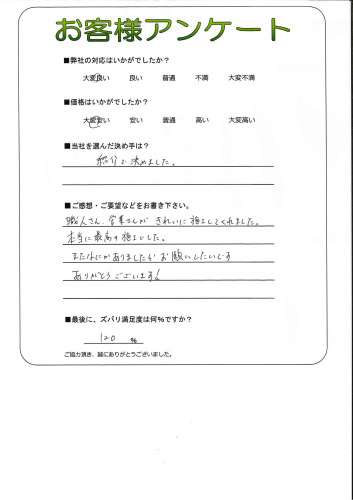 お客様アンケート
■弊社の対応はいかがでしたか？
大変良い 良い 普通 不満 大変不満
■価格はいかがでしたか？
大変安い 安い 普通 高い 大変高い
■当社を選んだ決め手は？
紹介で決めました。
■ご感想・ご要望などをお書き下さい。
職人さん、営業さんが きれいに施工してくれました。
本当に最高の施工でした。
また何かありましたらお願いしたいです
ありがとうございます！
■最後に、ズバリ満足度は何％ですか？
120 %
ご協力頂き、誠にありがとうございました。